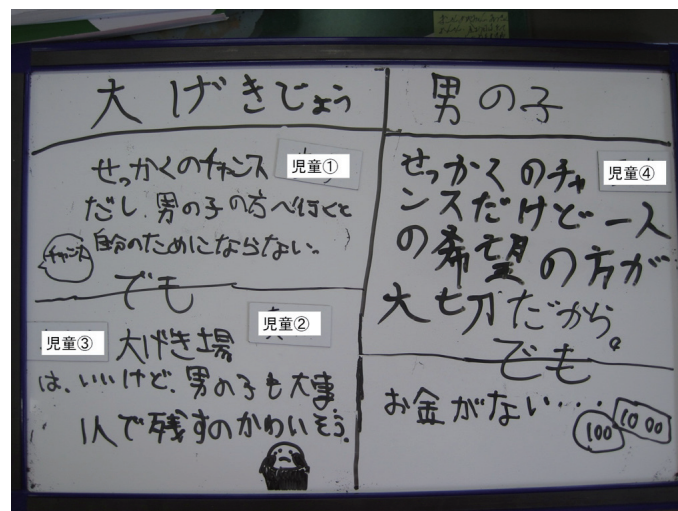 大げきじょう
せっかくのチャンス
児童①
だし、男の子の方へ行くと
自分のためにならない。
チャンス
でも
児童②
児童③
大げき場
は、いいけど、男の子も大事
1人で残すのかわいそう。
男の子
せっかくのチャ
児童④
ンスだけど一人
の希望の方が
大切だから。
でも
お金がない・・・
100
1000